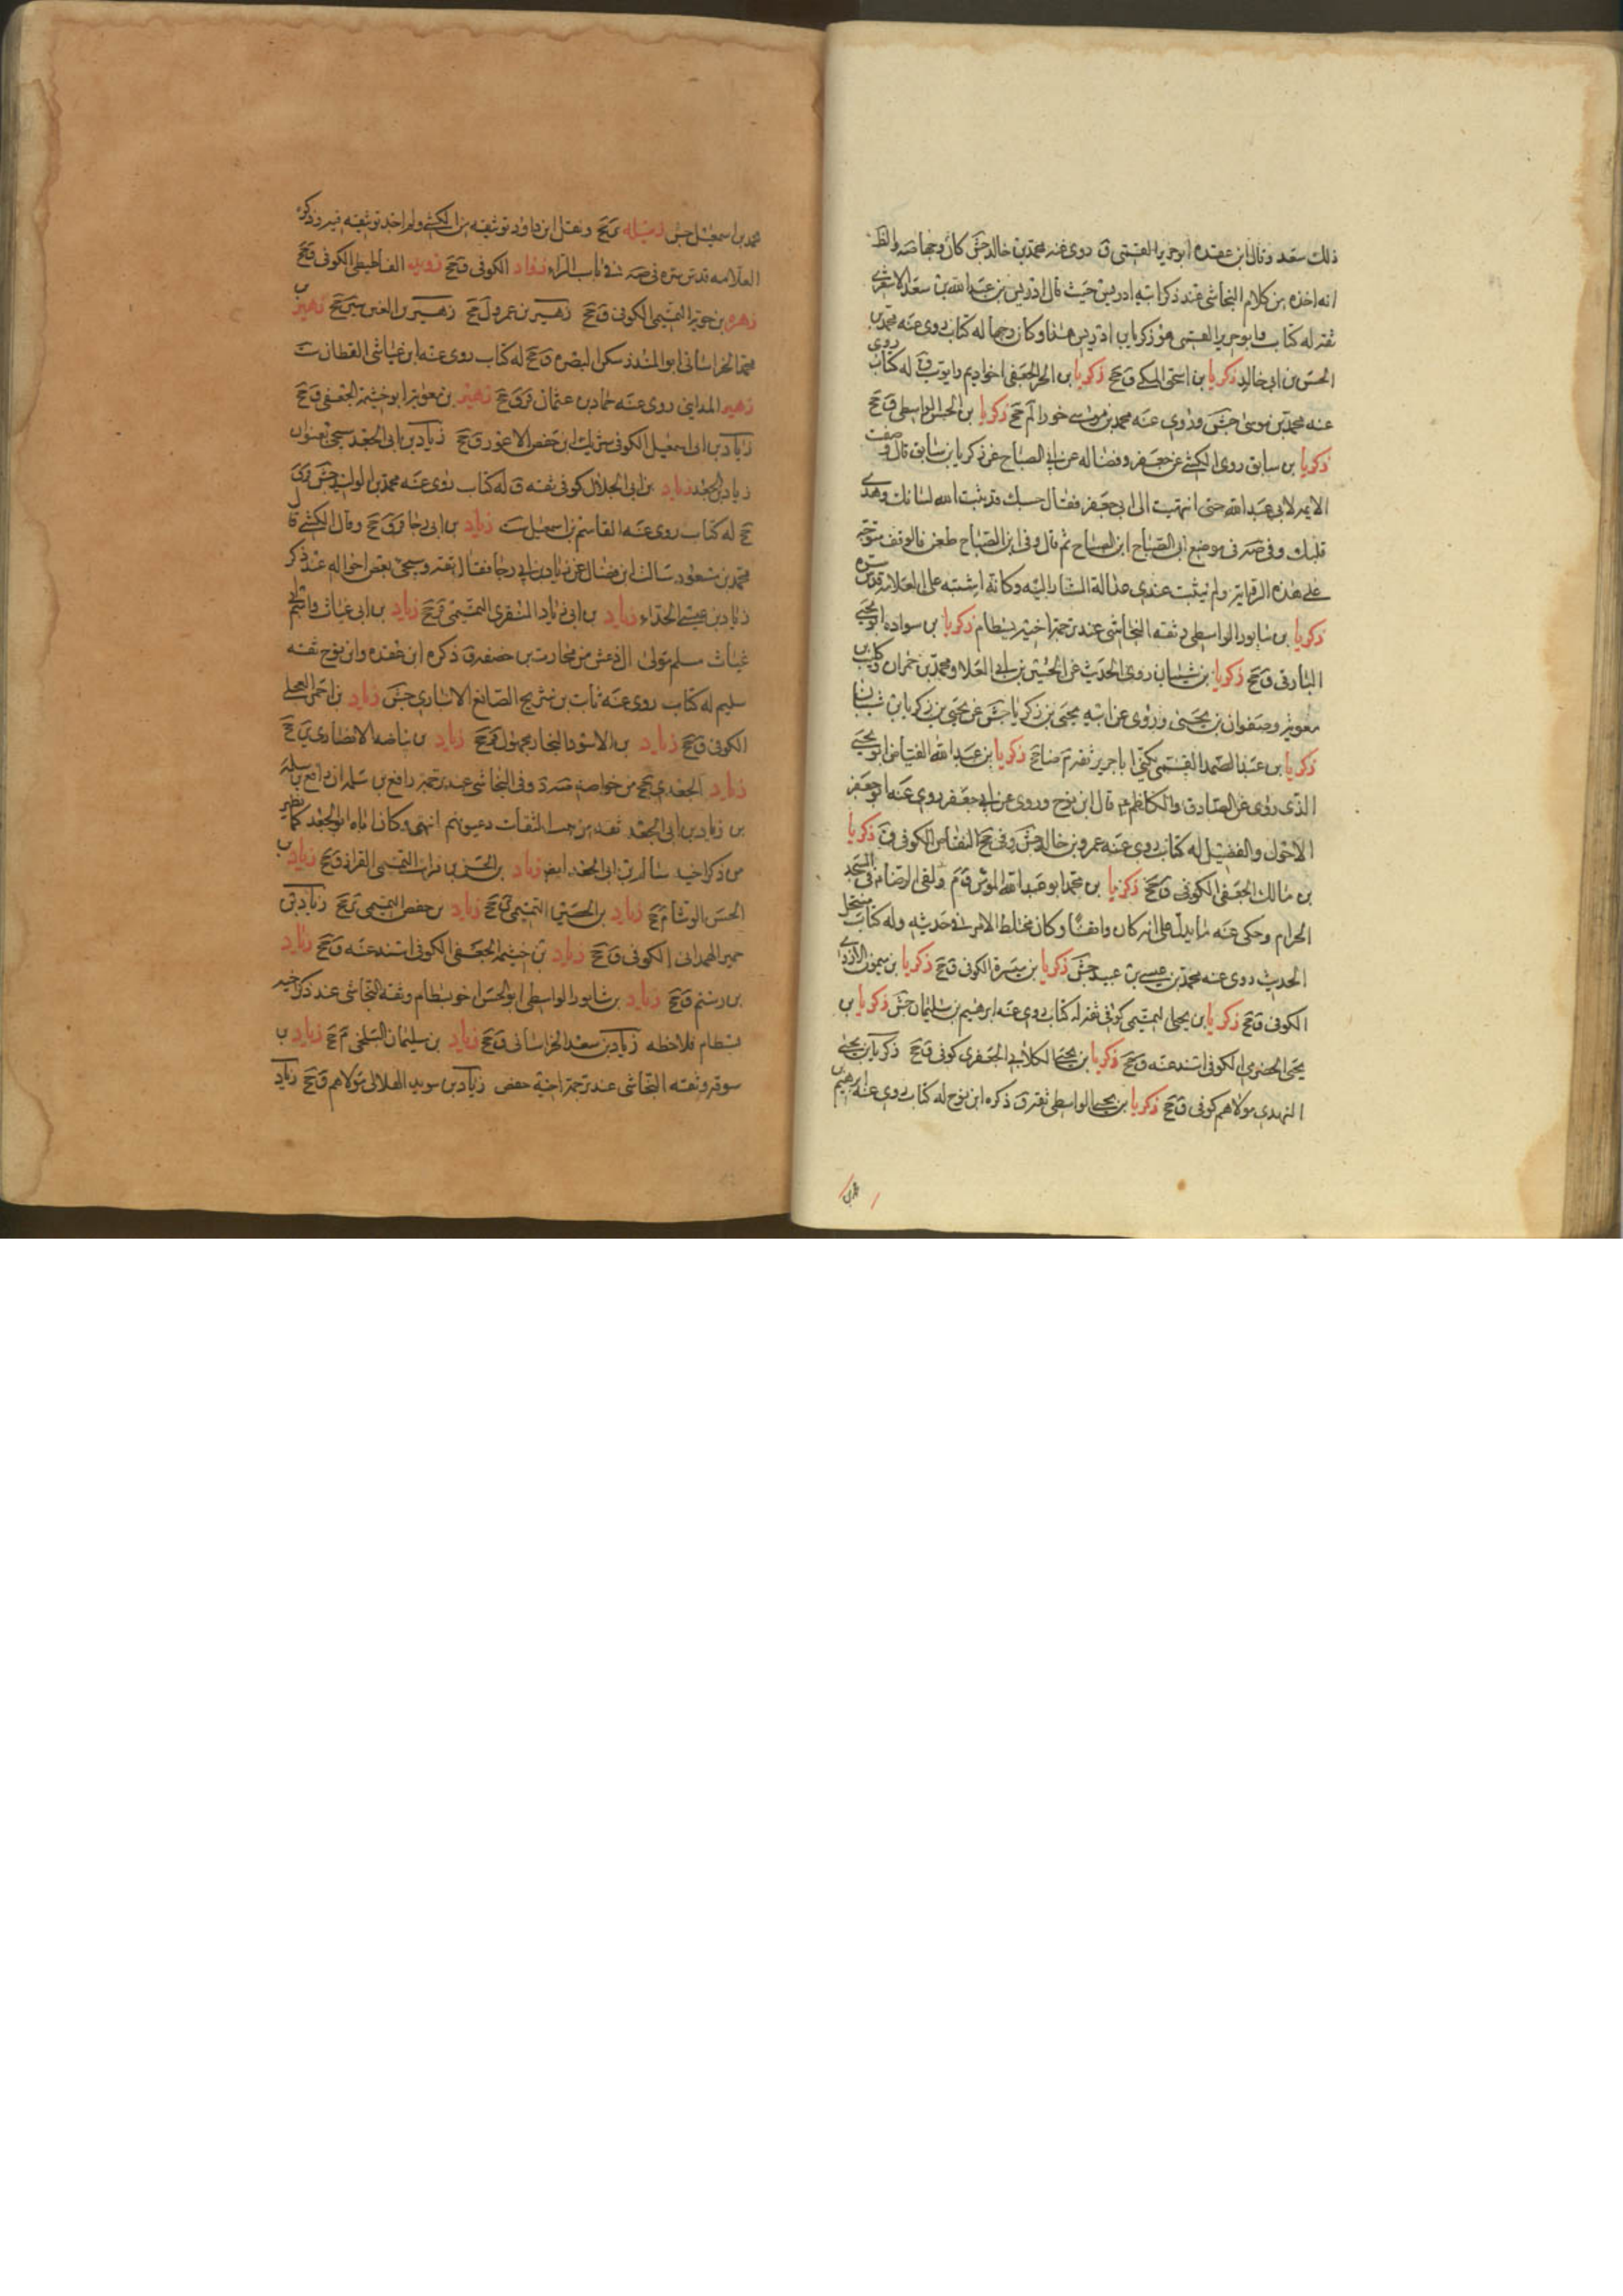 ذلك سعد وقال ابن عقده ابو جرير القمي ق روى عنه محمد بن خالد جش كان وجها صه والظ
انه اخذه من كلام النجاشي عند ذكر ابيه ادريس حيث قال ادريس بن عبد الله بن سعد الاشعري
ثقة له كتاب وابو جرير القمي هو زكريا بن ادريس هذا وكان وجها له كتاب روى عنه محمد بن
الحسن بن ابي خالد زكريا بن اسحق المكي ق جخ زكريا بن الحر الجعفي اخو اديم وايوب ق له كتاب روى
عنه محمد بن موسى جش وروى عنه محمد بن موسى خوراء لم جخ زكريا بن الحسن الواسطي ق جخ
زكريا بن سابق روى الكشي عن جعفر وفضاله عن ابي الصباح عن زكريا بن سابق قال وصفت
الائمه لابي عبد الله حتى انتهيت الى ابي جعفر فقال حسبك قد ثبت الله لسانك وهدى
قلبك وفي صه في موضع ابي الصباح ابن الصباح ثم قال وفي ابن الصباح طعن فالوقف متوجه
على هذه الرواية ولم يثبت عندي عدالة المشار اليه وكانه اشتبه على العلامه قدس سره
زكريا بن سابور الواسطي وثقه النجاشي عند ترجمة اخيه بسطام زكريا بن سواده ابو يحيى
البارقي ق جخ زكريا بن شيبان روى الحديث عن الحسين بن ابي العلا ومحمد بن حمران وكليب بن
معوية وصفوان بن يحيى وروى عن ابيه يحيى بن زكريا جش عن يحيى بن زكريا بن شيبان
زكريا بن عبد الصمد القمي يكنى ابا جرير ثقة م ضا جخ زكريا بن عبد الله الفياض ابو يحيى
الذي روى عن الصادق والكاظم ع قال ابن نوح وروى عن ابي جعفر روى عنه ابو جعفر
الاحول والفضيل له كتاب روى عنه عمرو بن خالد جش وفي جخ النقاض الكوفي ق زكريا
بن مالك الجعفي الكوفي ق جخ زكريا بن محمد ابو عبد الله المؤمن ق م ولقي الرضا ع في المسجد
الحرام وحكى عنه ما يدل على انه كان واقفا وكان مختلط الامر في حديثه وله كتاب منتحل
الحديث روى عنه محمد بن عيسى بن عبيد جش زكريا بن ميسرة الكوفي ق جخ زكريا بن ميمون الازدي
الكوفي ق جخ زكريا بن يحيى التميمي كوفي ثقة له كتاب روى عنه ابرهيم بن سليمان جش زكريا بن
يحيى الحضرمي الكوفي اسند عنه ق جخ زكريا بن يحيى الكلابي الجعفري كوفي ق جخ زكريا بن يحيى
النهدي مولاهم كوفي ق جخ زكريا بن يحيى الواسطي ثقة ق ذكره ابن نوح له كتاب روى عنه ابرهيم بن
محمد بن
محمد بن اسمعيل جش زميله ي جخ ونقل ابن داود توثيقه من الكشي ولم اجد توثيقه فيه وذكره
العلامه قدس سره في صه في باب الراء زواد الكوفي ق جخ زويد الفساطيطي الكوفي ق جخ
زهره بن حويه التميمي الكوفي ق جخ زهير بن عمرو ل جخ زهير بن القين سين جخ زهير بن
محمد الخراساني ابو المنذر سكن البصره ق جخ له كتاب روى عنه ابن عياش القطان ست
زهير المدايني روى عنه حماد بن عثمان قر ق جخ زهير بن معوية ابو خيثمة الجعفي ق جخ
زياد بن ابي اسمعيل الكوفي شريك ابن حفص الاعور ق جخ زياد بن ابي الجعد سيجئ بعنوان
زياد بن الجعد زياد بن ابي الحلال كوفي ثقه ق له كتاب روى عنه محمد بن الوليد جش قر ق
جخ له كتاب روى عنه القاسم بن اسمعيل ست زياد بن ابي رجا قر ق جخ وقال الكشي قال
محمد بن مسعود سالت ابن فضال عن زياد بن ابي رجا فقال ثقة وسيجئ بعض احواله عند ذكر
زياد بن عيسى الحذاء زياد بن ابي زياد المنقري التميمي ق جخ زياد بن ابي غياث واسم ابي
غياث مسلم مولى ال دغش من محارب بن خصفه ق ذكره ابن عقده وابن نوح ثقه
سليم له كتاب روى عنه ثابت بن شريح الصائغ الانباري جش زياد بن احمر العجلي
الكوفي ق جخ زياد بن الاسود النجار مجهول قر جخ زياد بن بياضه الانصاري ي جخ
زياد الجعدي ي جخ من خواصه وفي النجاشي عند ترجمة رافع بن سلمه ان رافع بن سلمه
بن زياد بن ابي الجعد ثقه من بيت الثقات وعيونهم انتهى وكان اباه ابو الجعد كما يظهر
من ذكر اخيه سالم بن ابي الجعد ايضا زياد بن الحسن بن فرات التميمي القزاز ق جخ زياد بن
الحسن الوشا م جخ زياد بن الحسين التميمي ق جخ زياد بن حفص التميمي ي جخ زياد بن
حمير الهمداني الكوفي ق جخ زياد بن خيثمه الجعفي الكوفي اسند عنه ق جخ زياد
بن رستم ق جخ زياد بن شابور الواسطي ابو الحسن اخو بسطام وثقه النجاشي عند ذكر اخيه
بسطام فلاحظه زياد بن سعد الخراساني ق جخ زياد بن سليمان البلخي م جخ زياد بن
سوقه وثقه النجاشي عند ترجمة اخيه حفص زياد بن سويد الهلالي مولاهم ق جخ زياد